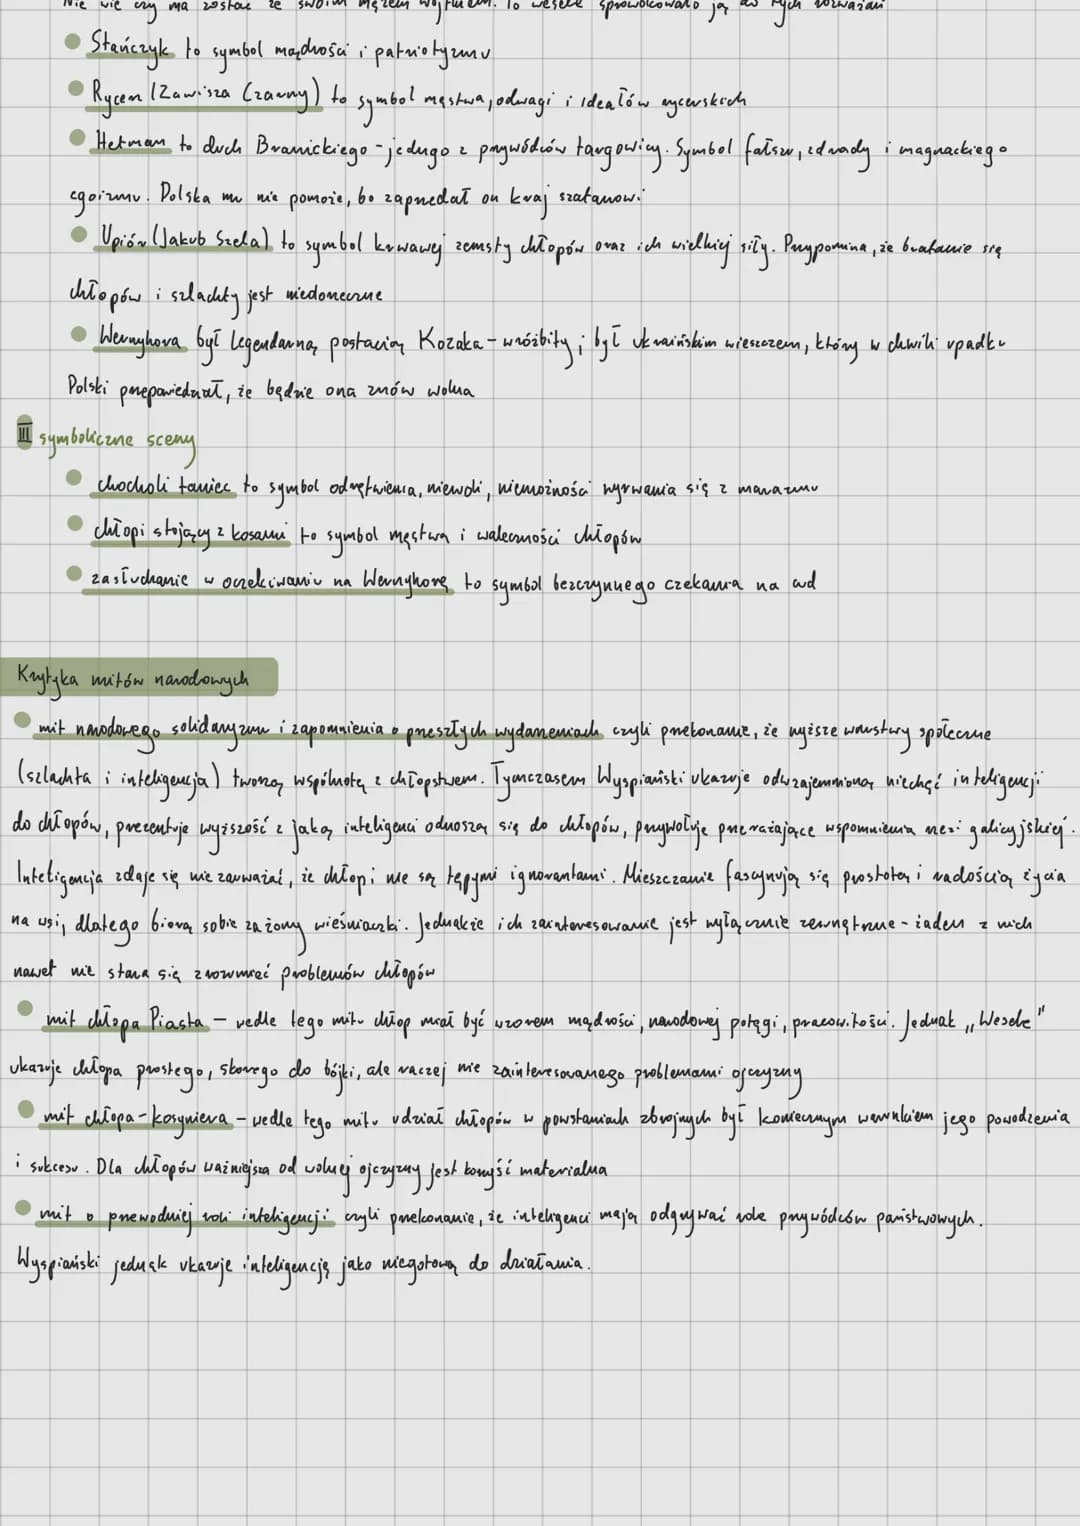 Nie wie czy ma zostać ze swoim mężem Wojtkiem. To wesele sprowokowało ją do tych rozważań
Stańczyk to symbol mądrości i patriotyzmu
Rycerz (Zawisza Czarny) to symbol męstwa, odwagi i ideałów rycerskich
Hetman to duch Branickiego - jednego z przywódców targowicy. Symbol fałszu, zdrady i magnackiego
egoizmu. Polska mu nie pomoże, bo zaprzedał on kraj szatanowi
Upiór (Jakub Szela) to symbol krwawej zemsty chłopów oraz ich wielkiej siły. Przypomina, że bratanie się
chłopów i szlachty jest niedorzeczne
Wernyhora był legendarną postacią Kozaka - wróżbity, był ukraińskim wieszczem, który w chwili upadku
Polski przepowiedział, że będzie ona znów wolna
III symboliczne sceny
chocholi taniec to symbol odrętwienia, niewoli, niemożności wyrwania się z marazmu
chłopi stojący z kosami to symbol męstwa i waleczności chłopów
zasłuchanie w oczekiwaniu na Wernyhorę to symbol bezczynnego czekania na cud
Krytyka mitów narodowych
mit narodowego solidaryzmu i zapomnienia o przeszłych wydarzeniach czyli przekonanie, że wyższe warstwy społeczne
(szlachta i inteligencja) tworzą wspólnotę z chłopstwem. Tymczasem Wyspiański ukazuje odwzajemnioną niechęć inteligencji
do chłopów, prezentuje wyższość z jaką inteligenci odnoszą się do chłopów, przywołuje przerażające wspomnienia rzezi galicyjskiej.
Inteligencja zdaje się nie zauważać, że chłopi nie są tępymi ignorantami. Mieszczanie fascynują się prostotą i radością życia
na wsi, dlatego biorą sobie za żony wieśniaczki. Jednakże ich zainteresowanie jest wyłącznie zewnętrzne - żaden z nich
nawet nie stara się zrozumieć problemów chłopów
mit chłopa Piasta - wedle tego mitu chłop miał być wzorem mądrości, narodowej potęgi, pracowitości. Jednak „Wesele"
ukazuje chłopa prostego, skorego do bójki, ale raczej nie zainteresowanego problemami ojczyzny
mit chłopa - kosyniera - wedle tego mitu udział chłopów w powstaniach zbrojnych był koniecznym warunkiem jego powodzenia
i sukcesu. Dla chłopów ważniejsza od wolnej ojczyzny jest korzyść materialna
mit o przewodniej roli inteligencji czyli przekonanie, że inteligenci mają odgrywać role przywódców państwowych.
Wyspiański jednak ukazuje inteligencję jako niegotową do działania.